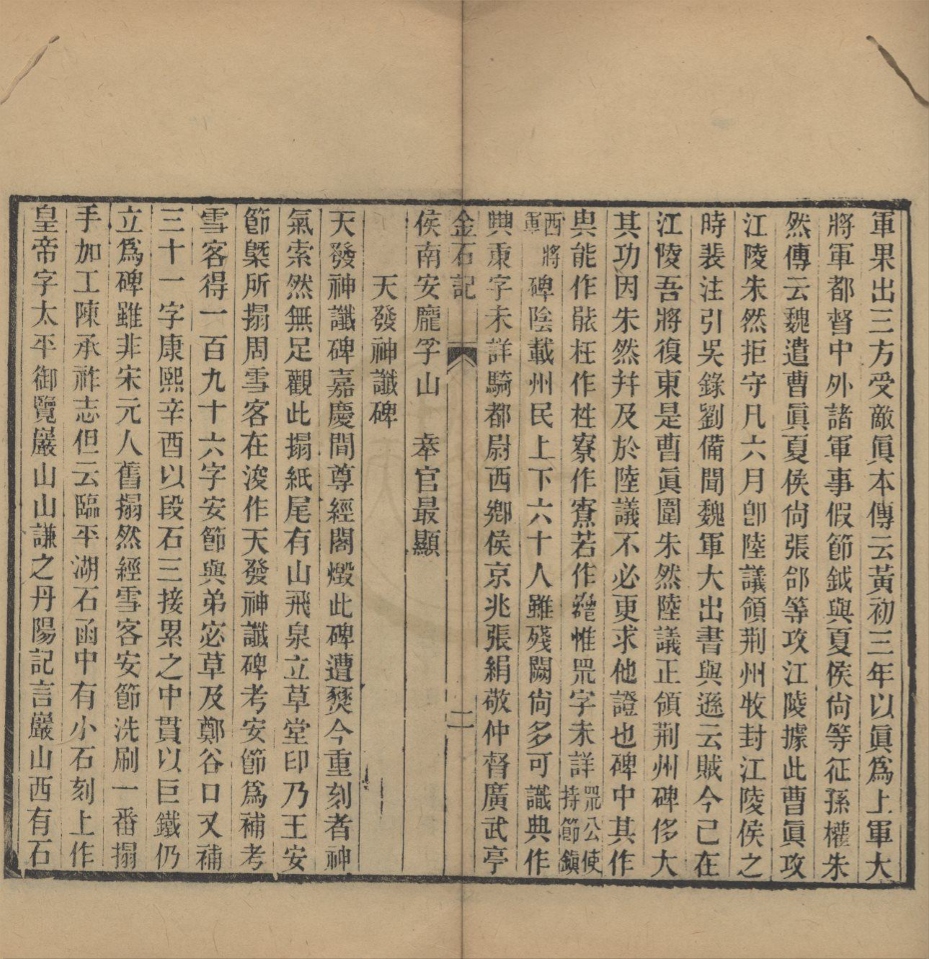 軍果出三方受敵眞本傳云黃初三年以眞爲上軍大
將軍都督中外諸軍事假節鉞與夏侯尙等征孫權朱
然傳云魏遣曹眞夏侯尙張郃等攻江陵據此曹眞攻
江陵朱然拒守凡六月卽陸議領荆州牧封江陵侯之
時裴注引吳錄劉備聞魏軍大出書與遜云賊今已在
江陵吾將復東是曹眞圍朱然陸議正領荆州碑侈大
其功因朱然幷及於陸議不必更求他證也碑中其作
㒷能作䏻枉作㭃寮作寮若作惟㒭字未詳㒭公使持節鎭
西將軍碑陰載州民上下六十人雖殘闕尙多可識典作
秉字未詳騎都尉西鄉侯京兆張緝敬仲督廣武亭
金石記 二
侯南安龐孚山 奉官最顯
天發神讖碑
天發神讖碑嘉慶間尊經閣燬此碑遭爇今重刻者神
氣索然無足觀此搨紙尾有山飛泉立草堂印乃王安
節槩所搨周雪客在浚作天發神讖碑考安節爲補考
雪客得一百九十六字安節與弟宓草及鄭谷口又補
三十一字康熙辛酉以段石三接累之中貫以巨鐵仍
立爲碑雖非宋元人舊搨然經雪客安節洗刷一番搨
手加工陳承祚志但云臨平湖石函中有小石刻上作
皇帝字太平御覽巖山山謙之丹陽記言巖山西有石